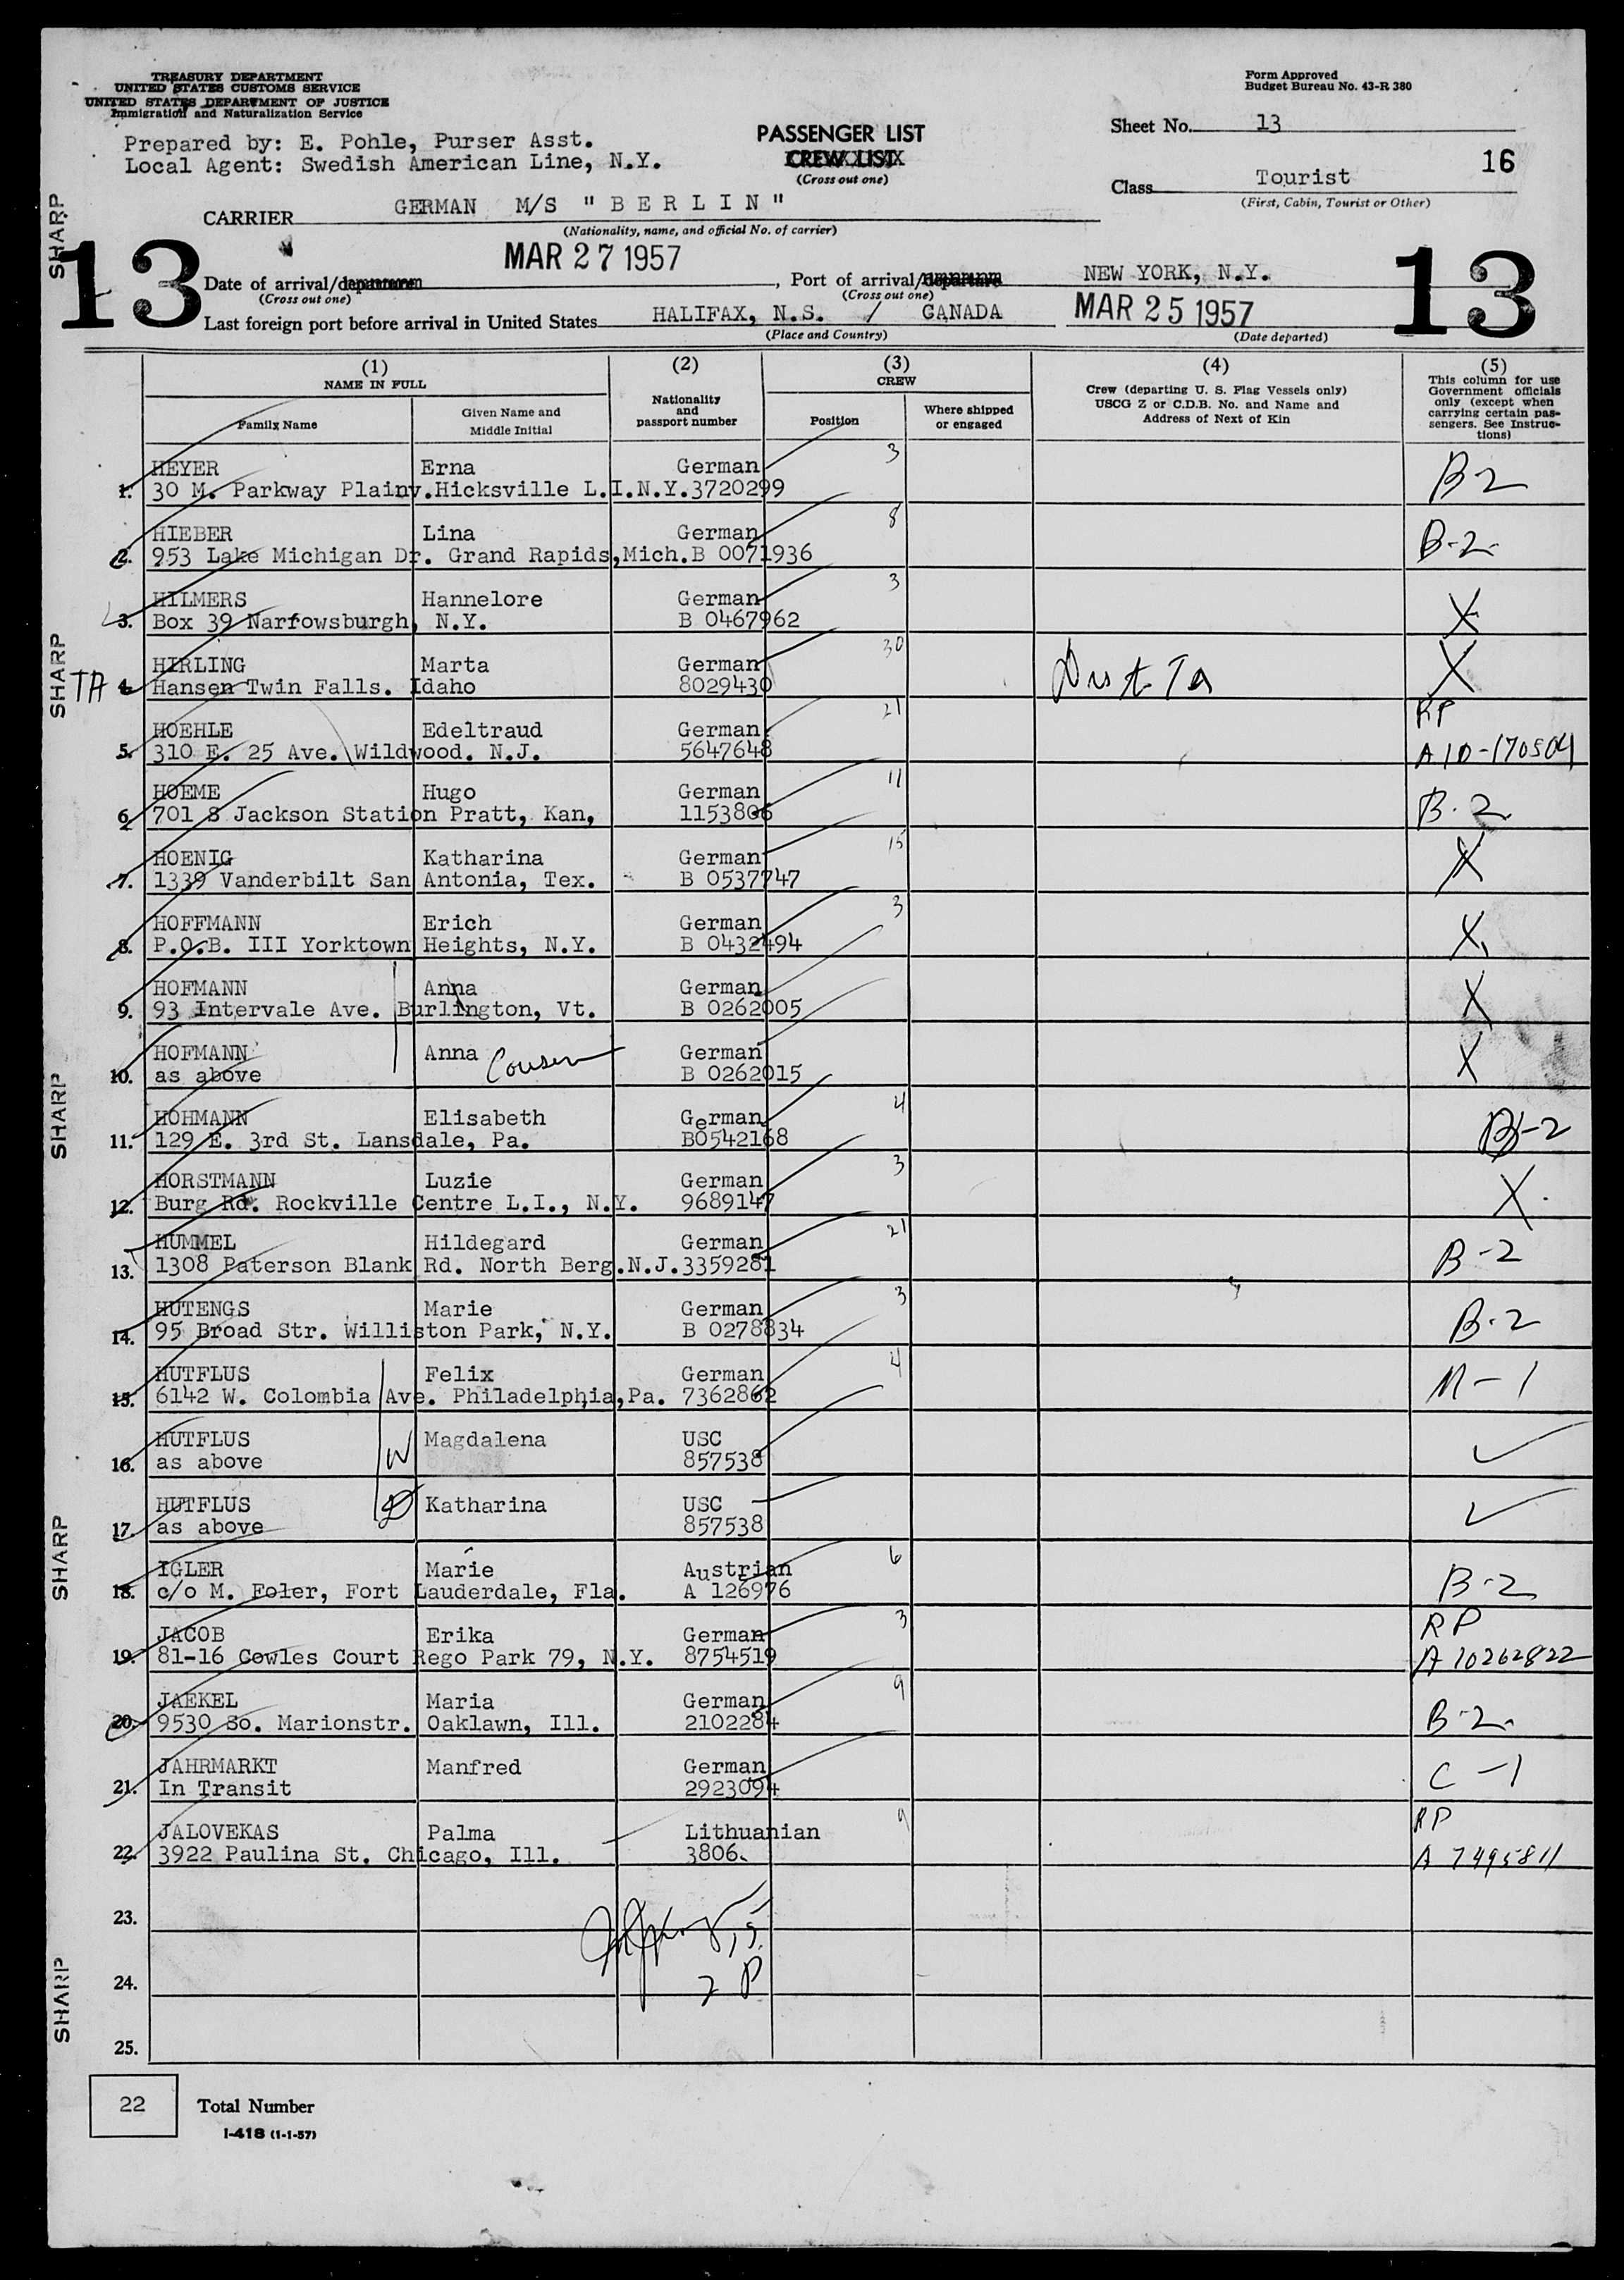 TREASURY DEPARTMENT
UNITED STATES CUSTOMS SERVICE
UNITED STATES DEPARTMENT OF JUSTICE
Immigration and Naturalization Service
Form Approved
Budget Bureau No. 43-R 380
Prepared by: E. Pohle, Purser Asst.
Local Agent: Swedish American Line, N.Y.
PASSENGER LIST
CREW LIST
(Cross out one)
Sheet No. 13
16
Class Tourist
(First, Cabin, Tourist or Other)
CARRIER GERMAN M/S "BERLIN"
(Nationality, name, and official No. of carrier)
13
MAR 27 1957
13
Date of arrival/departure, Port of arrival/departure NEW YORK, N.Y.
(Cross out one) (Cross out one)
Last foreign port before arrival in United States HALIFAX, N.S. / CANADA MAR 25 1957
(Place and Country) (Date departed)
(1) NAME IN FULL
Family Name
Given Name and Middle Initial
(2) Nationality and passport number
(3) CREW
Position
Where shipped or engaged
(4) Crew (departing U. S. Flag Vessels only) USCG Z or C.D.B. No. and Name and Address of Next of Kin
(5) This column for use Government officials only (except when carrying certain passengers. See Instructions)
HEYER Erna German 3
1. 30 M. Parkway Plainv.Hicksville L.I.N.Y.3720299 B2
HIEBER Lina German 8
2. 953 Lake Michigan Dr. Grand Rapids,Mich.B 0071936 B-2
HILMERS Hannelore German 3
3. Box 39 Narrowsburgh, N.Y. B 0467962 X
HIRLING Marta German 30
TA 4. Hansen Twin Falls. Idaho 8029430 X
HOEHLE Edeltraud German 21 RP
5. 310 E. 25 Ave. Wildwood. N.J. 5647648 A10-170504
HOEME Hugo German 11
6. 701 S Jackson Station Pratt, Kan, 1153806 B-2
HOENIG Katharina German 15
7. 1339 Vanderbilt San Antonia, Tex. B 0537747 X
HOFFMANN Erich German 3
8. P.O.B. III Yorktown Heights, N.Y. B 0432494 X
HOFMANN Anna German
9. 93 Intervale Ave. Burlington, Vt. B 0262005 X
HOFMANN Anna German
10. as above B 0262015 X
HOHMANN Elisabeth German 4
11. 129 E. 3rd St. Lansdale, Pa. B0542168 B-2
HORSTMANN Luzie German 3
12. Burg Rd. Rockville Centre L.I., N.Y. 9689147 X
HUMMEL Hildegard German 21
13. 1308 Paterson Blank Rd. North Berg.N.J.3359281 B-2
HUTENGS Marie German 3
14. 95 Broad Str. Williston Park, N.Y. B 0278834 B-2
HUTFLUS Felix German 4
15. 6142 W. Colombia Ave. Philadelphia,Pa. 7362862 M-1
HUTFLUS W Magdalena USC
16. as above 857538
HUTFLUS D Katharina USC
17. as above 857538
IGLER Marie Austrian 6
18. c/o M. Foler, Fort Lauderdale, Fla. A 126976 B-2
JACOB Erika German 3 RP
19. 81-16 Cowles Court Rego Park 79, N.Y. 8754519 A 10262822
JAEKEL Maria German 9
20. 9530 So. Marionstr. Oaklawn, Ill. 2102284 B-2
JAHRMARKT Manfred German
21. In Transit 2923094 C-1
JALOVEKAS Palma Lithuanian 9 RP
22. 3922 Paulina St. Chicago, Ill. 3806 A 7495811
23.
24.
25.
22 Total Number
I-418 (1-1-57)
SHARP
SHARP
SHARP
SHARP
SHARP